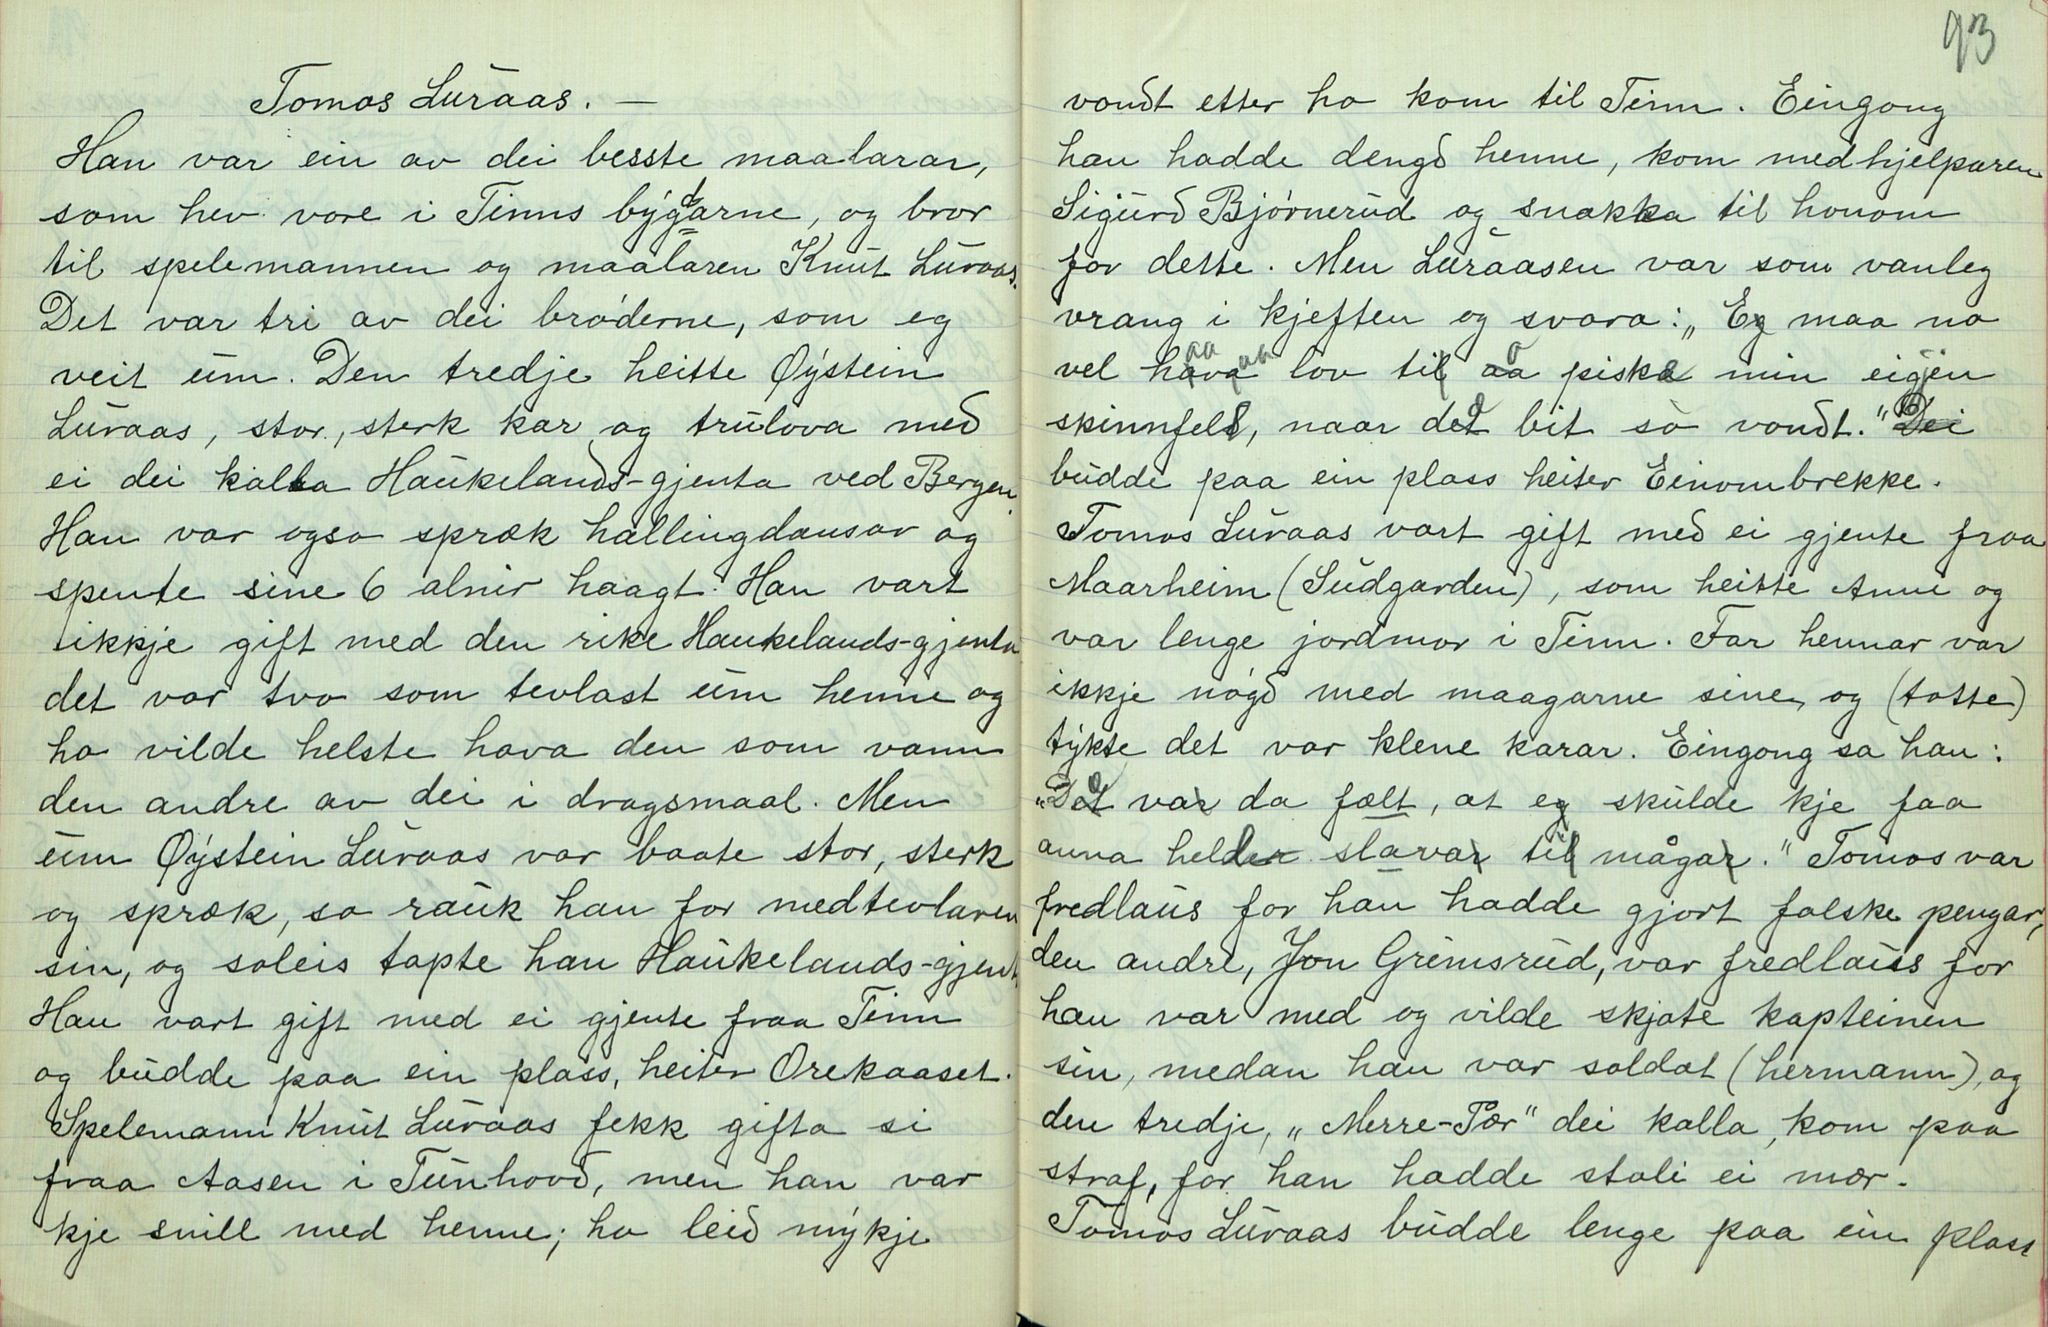 Tomos Luraas. —
Han var ein av dei besste maalarar,
som hev vore i Tinns bygdarne, og bror
til spelemannen og maalaren Knut Luraas.
Det var tri av dei brøderne, som eg
veit um. Den tredje heitte Øystein
Luraas, stor, sterk kar og trulova með
ei dei kalla Haukelands-gjenta ved Bergen.
Han var ogso spræk hallingdansar og
spente sine 6 alnir haagt. Han vart
ikkje gift med den rike Haukelands-gjenta
det var tvo som tevlast um henne og
ho vilde helste hava den som vann
den andre av dei i dragsmaal. Men
um Øystein Luraas var baate stor, sterk
og spræk, so rauk han for medtevlaren
sin, og soleis tapte han Haukelands-gjenta.
Han vart gift med ei gjente fraa Tinn
og budde paa ein plass, heiter Orekaaset.
Spelemann Knut Luraas fekk gifta si
fraa Aasen i Tunhovð, men han var
kje snill med henne; ho leið mykje
93
vondt etter ho kom til Tinn. Eingong
han hadde dengð henne, kom medhjelparen
Sigurð Bjørnerud og snakka til honom
for dette. Men Luraasen var som vanleg
vrang i kjeften og svara: „Eg maa no
vel hava lov til aa piska min eigjen
skinnfeld, naar det bit so vonðt." Dei
budde paa ein plass heiter Einombrekke.
Tomos Luraas vart gift með ei gjente fraa
Maarheim (Sudgarden), som heitte Anne og
var lenge jordmor i Tinn. Far hennar var
ikkje nøgð med maagarne sine, og (totte)
tykte det var klene karar. Eingong sa han:
„Det var da fælt, at eg skulde kje faa
anna helder slavar til mågar." Tomos var
fredlaus for han hadde gjort falske pengar,
den andre, Jon Grimsrud, var fredlaus for
han var med og vilde skjote kapteinen
sin, medan han var soldat (hermann), og
den tredje, „Merre-Pær" dei kalla, kom paa
straf, for han hadde stoli ei mær.
Tomos Luraas budde lenge paa ein plass